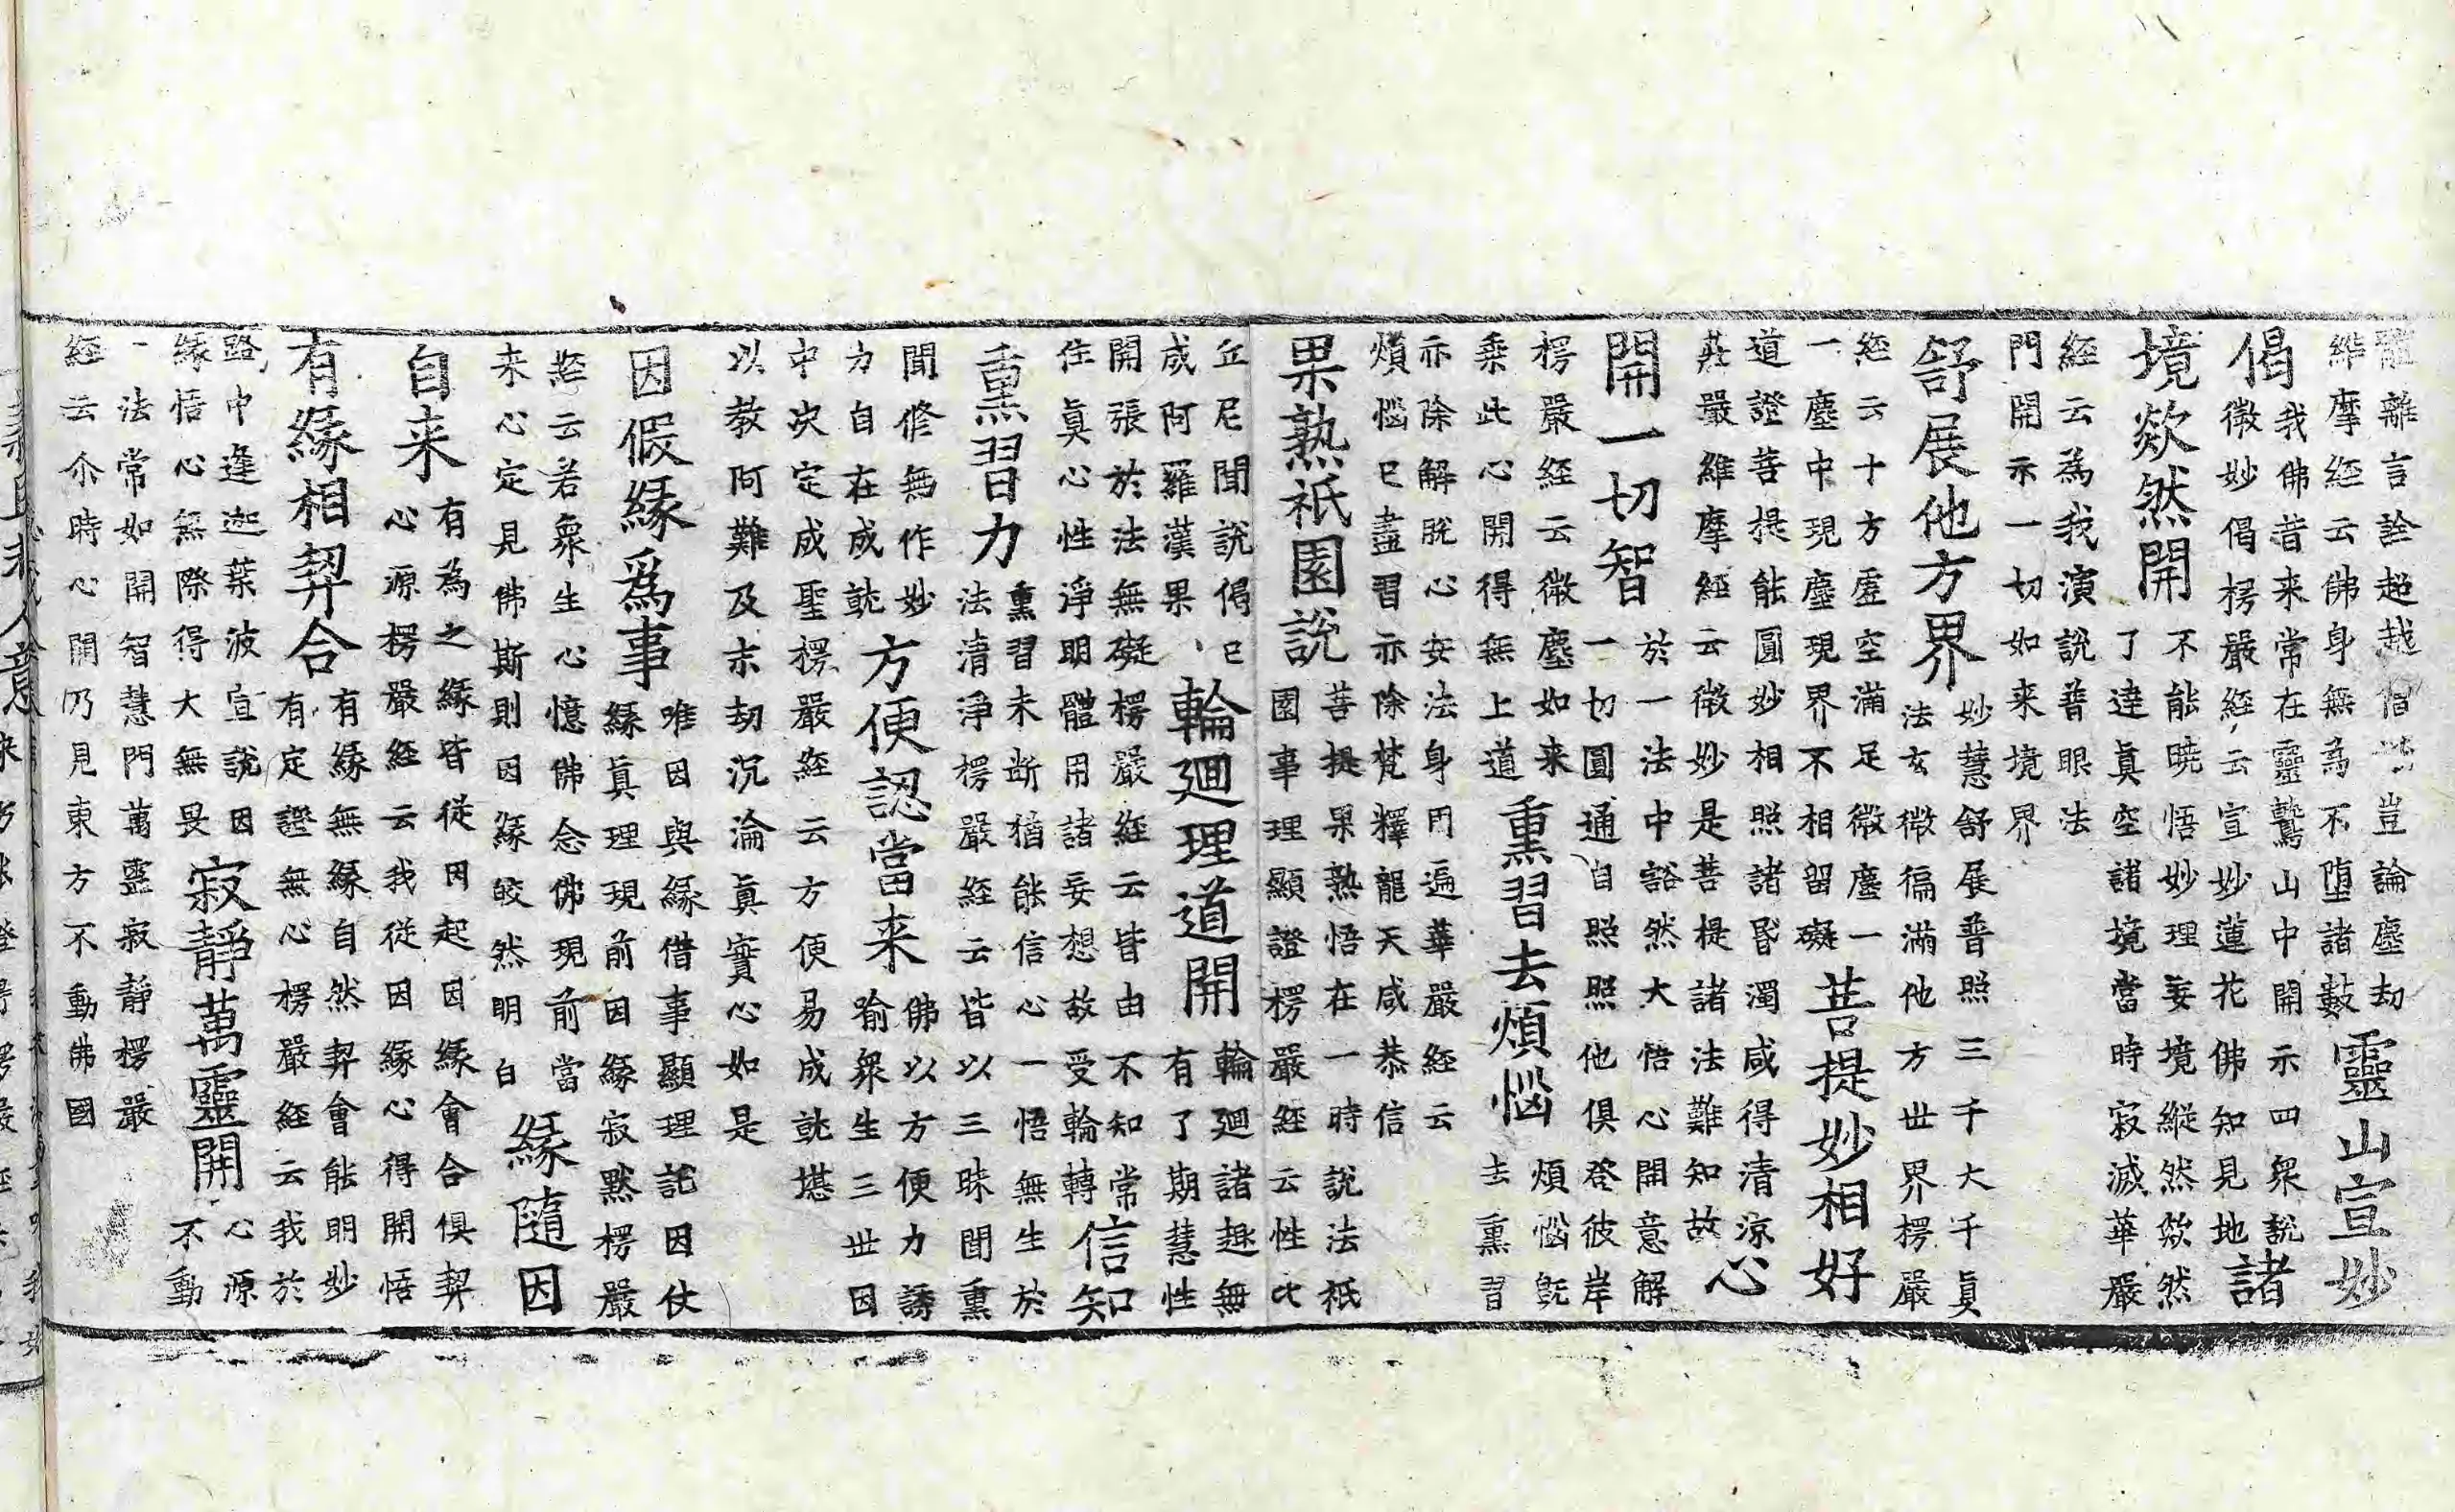 體離言詮超越僧豈論塵劫
維摩經云佛身無為不墮諸數
靈山宣妙
偈
我佛昔来常在靈鷲山中開示四衆說
微妙偈楞嚴經云宣妙蓮花佛知見地
諸
境欻然開
不能曉悟妙理妄境縱然欻然
了達真空諸境當時寂滅華嚴
經云為我演說普眼法
門開示一切如来境界
舒展他方界
妙慧舒展普照三千大千真
法玄微徧滿他方世界楞嚴
經云十方虛空滿足微塵一
一塵中現塵現界不相留礙
菩提妙相好
道證菩提能圓妙相照諸昏濁咸得清凉
莊嚴維摩經云微妙是菩提諸法難知故
心
開一切智
於一法中豁然大悟心開意解
一切圓通自照照他俱登彼岸
楞嚴經云微塵如来
乗此心開得無上道
熏習去煩惱
煩惱既
去熏習
亦除解脫心安法身門遍華嚴經云
煩惱已盡習亦除梵釋龍天咸恭信
果熟祇園說
菩提果熟悟在一時說法祇
園事理顯證楞嚴經云性比
丘尼聞說偈已
成阿羅漢果
輪廻理道開
輪廻諸趣無
有了期慧性
開張於法無礙楞嚴經云皆由不知常
住真心性淨明體用諸妄想故受輪轉
信知
熏習力
熏習未断猶能信心一悟無生於
法清淨楞嚴經云皆以三昧聞熏
聞修無作妙
力自在成就
方便認當来
佛以方便力誘
喻衆生三世因
中决定成聖楞嚴經云方便易成就堪
以教阿難及末劫沉淪真實心如是
因假緣為事
唯因與緣借事顯理託因仗
緣真理現前因緣寂默楞嚴
經云若衆生心憶佛念佛現前當
来心定見佛斯則因緣皎然明白
緣隨因
自来
有為之緣皆從因起因緣會合俱契
心源楞嚴經云我從因緣心得開悟
有緣相契合
有緣無緣自然契會能明妙
有定證無心楞嚴經云我於
路中逢迦葉波宣說因
緣悟心無際得大無畏
寂靜萬靈開
心源
不動
一法常如開智慧門萬靈寂靜楞嚴
經云尒時心開乃見東方不動佛國